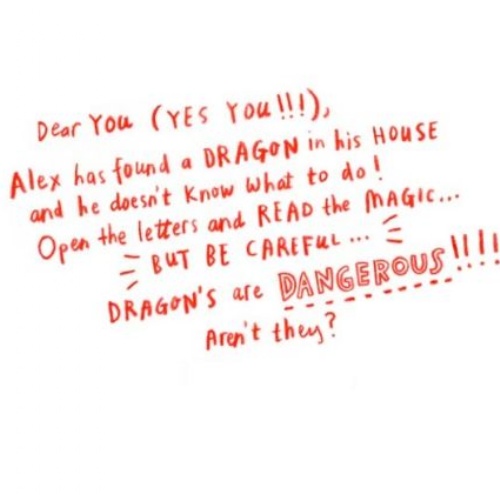 Dear You (YES You!!!),
Alex has found a DRAGON in his HOUSE
and he doesn't Know what to do!
Open the letters and READ the MAGIC...
BUT BE CAREFUL...
DRAGON'S are DANGEROUS!!!!
Aren't they?